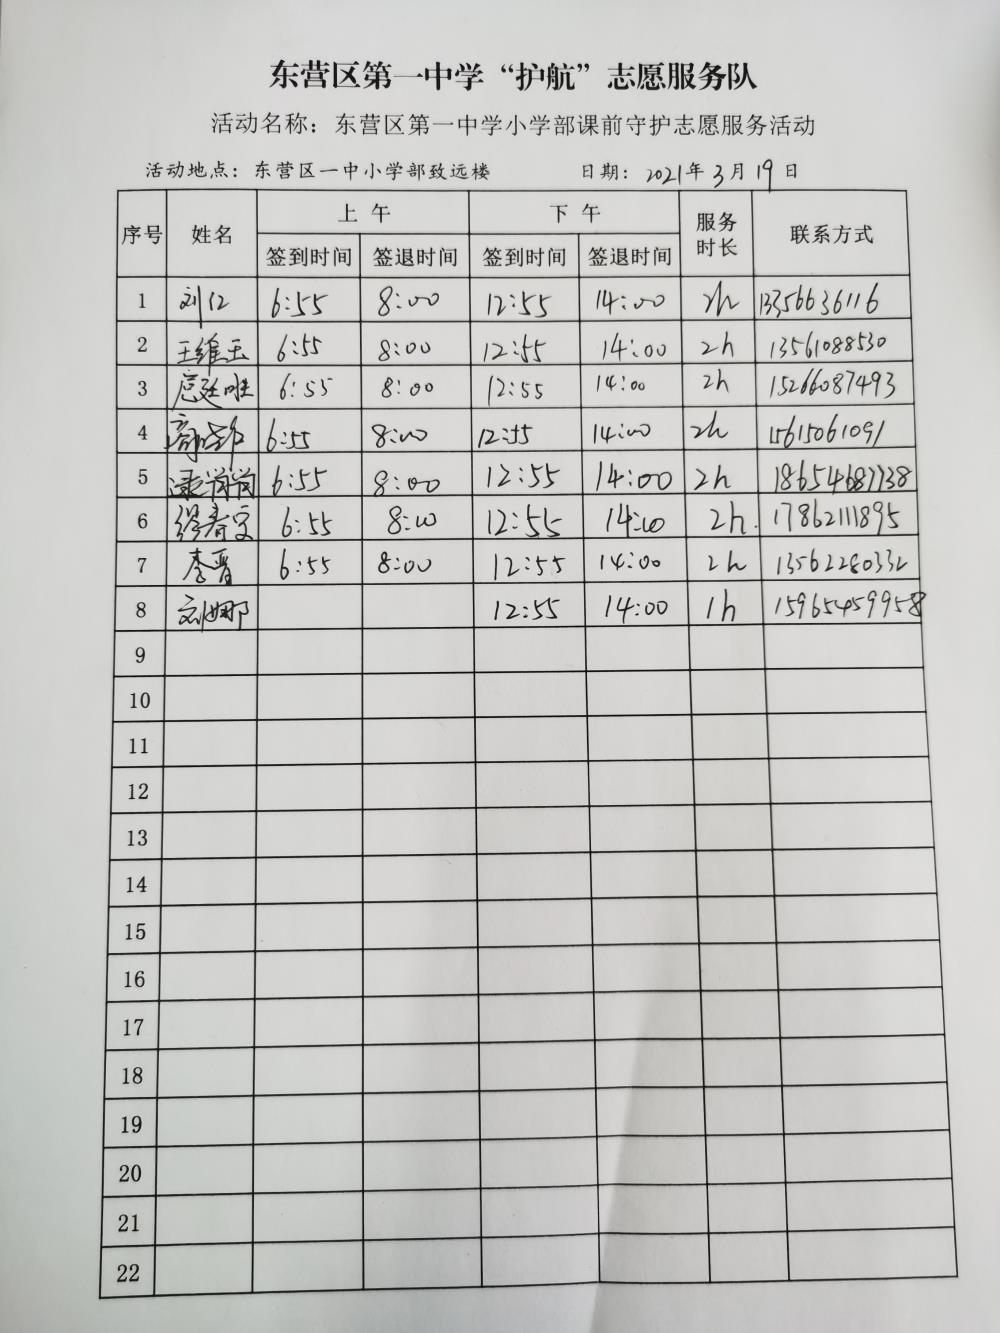 东营区第一中学“护航”志愿服务队
活动名称：东营区第一中学小学部课前守护志愿服务活动
活动地点：东营区一中小学部致远楼 日期：2021年3月19日
序号 姓名 上午 下午 服务时长 联系方式
签到时间 签退时间 签到时间 签退时间
1 刘仁 6:55 8:00 12:55 14:00 2h 13356636116
2 王维玉 6:55 8:00 12:55 14:00 2h 13561088530
3 6:55 8:00 12:55 14:00 2h 15266087493
4 6:55 8:00 12:55 14:00 2h 15615061091
5 6:55 8:00 12:55 14:00 2h 18654687738
6 6:55 8:00 12:55 14:00 2h. 17862111895
7 李晋 6:55 8:00 12:55 14:00 2h 13562280332
8 刘娜 12:55 14:00 1h 15965459958
9
10
11
12
13
14
15
16
17
18
19
20
21
22